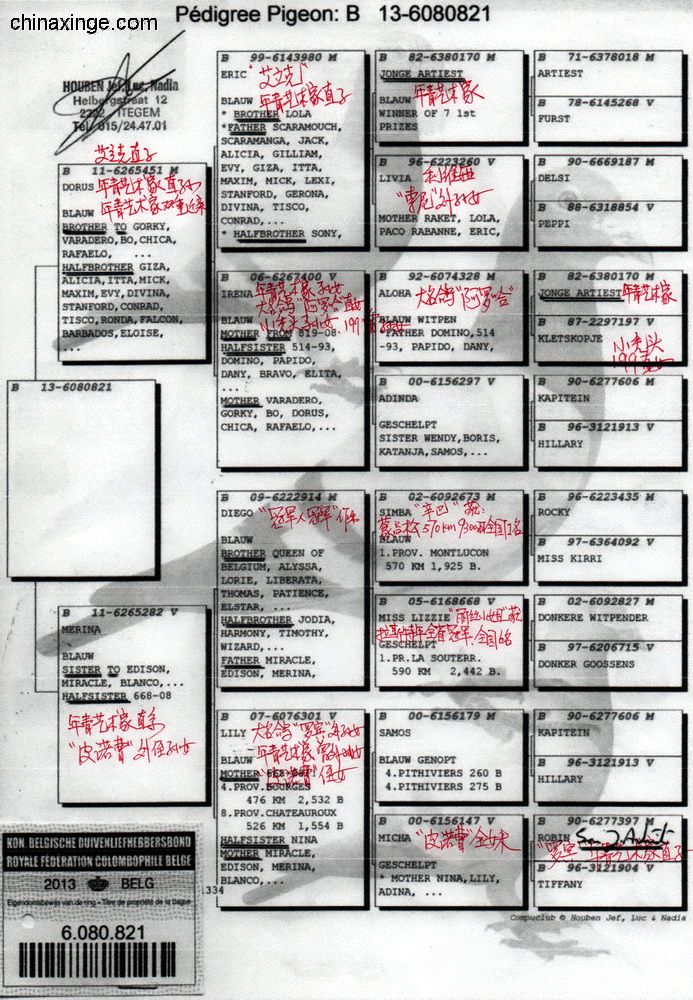 chinaxinge.com
Pédigree Pigeon: B 13-6080821
HOUBEN Jef, Luc, Nadia
Heibergstraat 12
ITEGEM
Tel. 015/24.47.01
艾立克直子
B 11-6265451 M
DORUS
年青艺术家直孙
年青艺术家双重近亲
BLAUW
BROTHER TO GORKY,
VARADERO,BO,CHICA,
RAFAELO, ...
HALFBROTHER GIZA,
ALICIA,ITTA,MICK,
MAXIM,EVY,DIVINA,
STANFORD,CONRAD,
TISCO,RONDA,FALCON,
BARBADOS,ELOISE,
...
B 13-6080821
B 11-6265282 V
MERINA
BLAUW
SISTER TO EDISON,
MIRACLE, BLANCO,...
HALFSISTER 668-08
年青艺术家直系
"皮诺曹"外侄孙女
B 99-6143980 M
ERIC "艾立克"
BLAUW 年青艺术家直子
* BROTHER LOLA
*FATHER SCARAMOUCH,
SCARAMANGA, JACK,
ALICIA, GILLIAM,
EVY, GIZA, ITTA,
MAXIM, MICK, LEXI,
STANFORD, GERONA,
DIVINA, TISCO,
CONRAD,...
* HALFBROTHER SONY,
B 06-6267400 V
IRENA 年青艺术家孙女
大名鸽"阿罗哈"直女
BLAUW
MOTHER FROM 819-08
HALFSISTER 514-93,
DOMINO, PAPIDO,
DANY, BRAVO, ELITA,
...
MOTHER VARADERO,
GORKY, BO, DORUS,
CHICA, RAFAELO,...
B 09-6222914 M
DIEGO "冠军人冠军"作出
BLAUW
BROTHER QUEEN OF
BELGIUM, ALYSSA,
LORIE, LIBERATA,
THOMAS, PATIENCE,
ELSTAR, ...
HALFBROTHER JODIA,
HARMONY, TIMOTHY,
WIZARD,...
FATHER MIRACLE,
EDISON, MERINA,
B 07-6076301 V
LILY 大名鸽"罗宾"外孙女
年青艺术家曾外孙女
BLAUW
"皮诺曹"侄女
MOTHER 668-08
4.PROV.BOURGES
476 KM 2,532 B
8.PROV.CHATEAUROUX
526 KM 1,554 B
HALFSISTER NINA
MOTHER MIRACLE,
EDISON, MERINA,
BLANCO,...
B 82-6380170 M
JONGE ARTIEST
BLAUW 年青艺术家
WINNER OF 7 1st
PRIZES
B 96-6223260 V
LIVIA 利维娅
MOTHER RAKET, LOLA,
PACO RABANNE, ERIC,
B 92-6074328 M
ALOHA 大名鸽"阿罗哈"
BLAUW WITPEN
FATHER DOMINO,514
-93, PAPIDO, DANY,
B 00-6156297 V
ADINDA
GESCHELPT
SISTER WENDY,BORIS,
KATANJA,SAMOS,...
B 02-6092673 M
SIMBA "辛巴"获:
蒙吕松570km
BLAUW
1.PROV. MONTLUCON
570 KM 1,925 B.
B 05-6168668 V
MISS LIZZIE "丽丝小姐"获
拉斯特年全省冠军.全国6名
GESCHELPT
1.PR.LA SOUTERR.
590 KM 2,442 B.
B 00-6156179 M
SAMOS
BLAUW GENOPT
4.PITHIVIERS 260 B
4.PITHIVIERS 275 B
B 00-6156147 V
MICHA "皮诺曹"全妹
GESCHELPT
* MOTHER NINA,LILY,
ADINA, ...
B 71-6378018 M
ARTIEST
B 78-6145268 V
FURST
B 90-6669187 M
DELSI
B 88-6318854 V
PEPPI
B 82-6380170 M
JONGE ARTIEST 年青艺术家
B 87-2297197 V
KLETSKOPJE 小秃头
B 90-6277606 M
KAPITEIN
B 96-3121913 V
HILLARY
B 96-6223435 M
ROCKY
B 97-6364092 V
MISS KIRRI
B 02-6092827 M
DONKERE WITPENDER
B 97-6206715 V
DONKER GOOSSENS
B 90-6277606 M
KAPITEIN
B 96-3121913 V
HILLARY
B 90-6277397 M
ROBIN
"罗宾"年青艺术家直子
B 96-3121904 V
TIFFANY
KON. BELGISCHE DUIVENLIEFHEBBERSBOND
ROYALE FEDERATION COLOMBOPHILE BELGE
2013 BELG
Eigendomsbewijs van de ring - Titre de propriété de la bague
6.080.821
.334
Compuclub © Houben Jef, Luc & Nadia